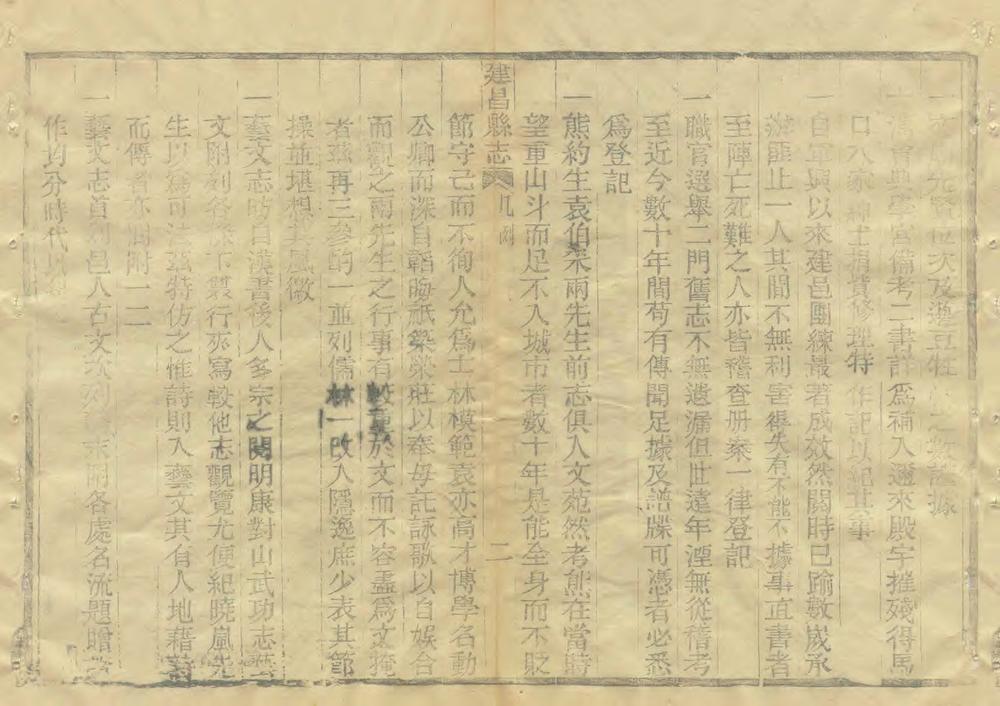 一文廟先賢位次及籩豆牲之數謹據
會典學宮備考二書詳爲補入邇來殿宇摧殘得馬
口八家紳士捐貲修理特作記以紀其事
一自軍興以來建邑團練最著成效然閱時已踰數歲承
辦匪止一人其間不無利害得失有不能不據事直書者
至陣亡死難之人亦皆稽查册案一律登記
一職官選舉二門舊志不無遺漏但世遠年湮無從稽考
至近今數十年間苟有傳聞足據及譜牒可憑者必悉
爲登記
一熊約生袁伯棻兩先生前志俱入文苑然考熊在當時
望重山斗而足不入城市者數十年是能全身而不貶
建昌縣志 凡例 二
節守己而不徇人允爲士林模範袁亦高才博學名動
公卿而深自韜晦祇綵萊衣以奉母託詠歌以自娛合
而觀之兩先生之行事有較重於文而不容盡爲文掩
者茲再三參酌一並列儒林一改入隱逸庶少表其節
操並堪想其風徽
一藝文志昉自漢書後人多宗之閱明康對山武功志藝
文附列各條下製行夾寫較他志觀覽尤便紀曉嵐先
生以爲可法茲特仿之惟詩則入藝文其有人地藉詩
而傳者亦間附一二
一藝文志首列邑人古文次列末附各處名流題贈
作均分時代以